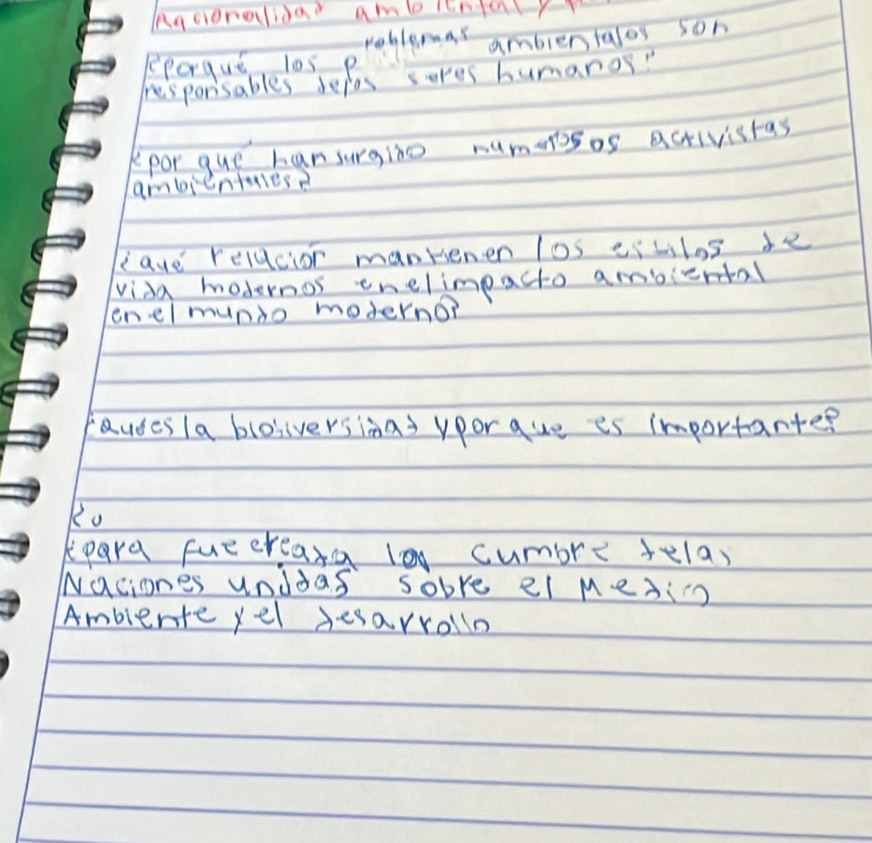 Racionalidad ambiental y
¿Porqué los problemas ambientales son
responsables delos seres humanos?
¿por qué han surgido numerosos activistas
ambientales?
¿qué relación mantienen los estilos de
vida modernos enelimpacto ambiental
enel mundo moderno?
¿qudesla biodiversidad yporque es importante?
¿para fue creada la cumbre delas
Naciones unidas sobre el Medio
Ambiente yel desarrollo